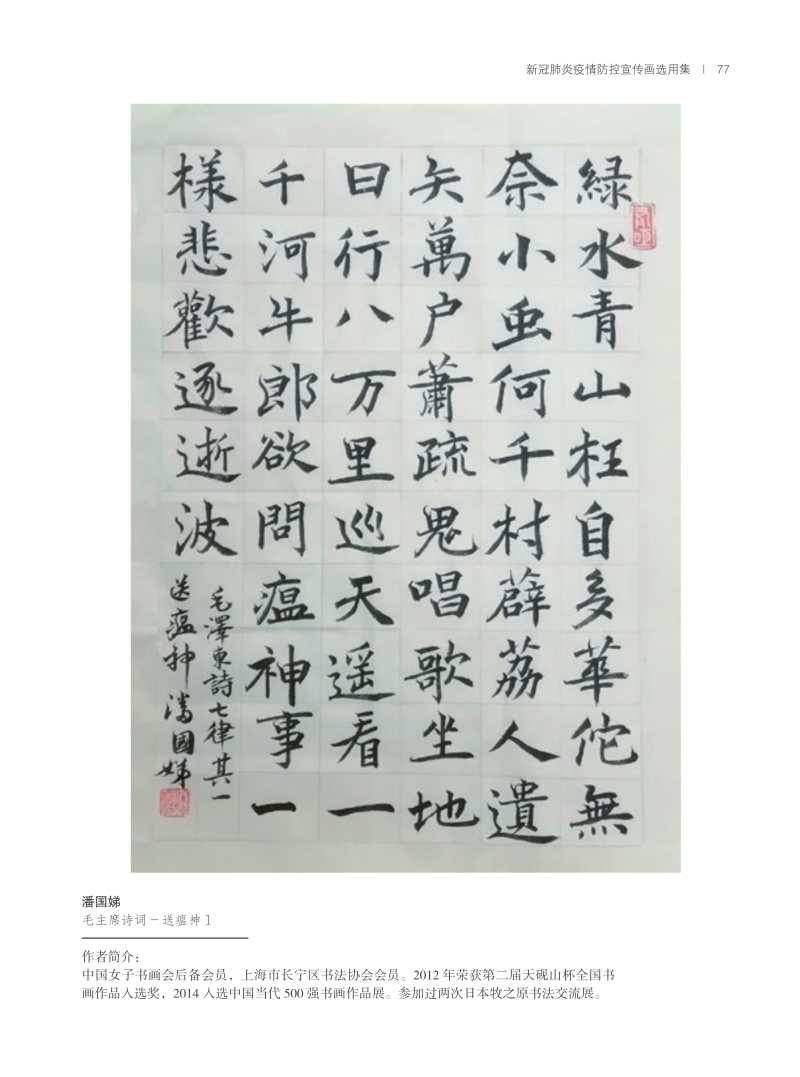 新冠肺炎疫情防控宣传画选用集 | 77
緑水青山枉自多華佗無
奈小虫何千村薜荔人遺
矢萬户蕭疏鬼唱歌坐地
日行八万里巡天遥看一
千河牛郎欲問瘟神事一
樣悲歡逐逝波
毛澤東詩七律其一
送瘟神潘國娣
潘国娣
毛主席诗词－送瘟神1
作者简介：
中国女子书画会后备会员，上海市长宁区书法协会会员。2012 年荣获第二届天砚山杯全国书
画作品入选奖，2014 入选中国当代 500 强书画作品展。参加过两次日本牧之原书法交流展。